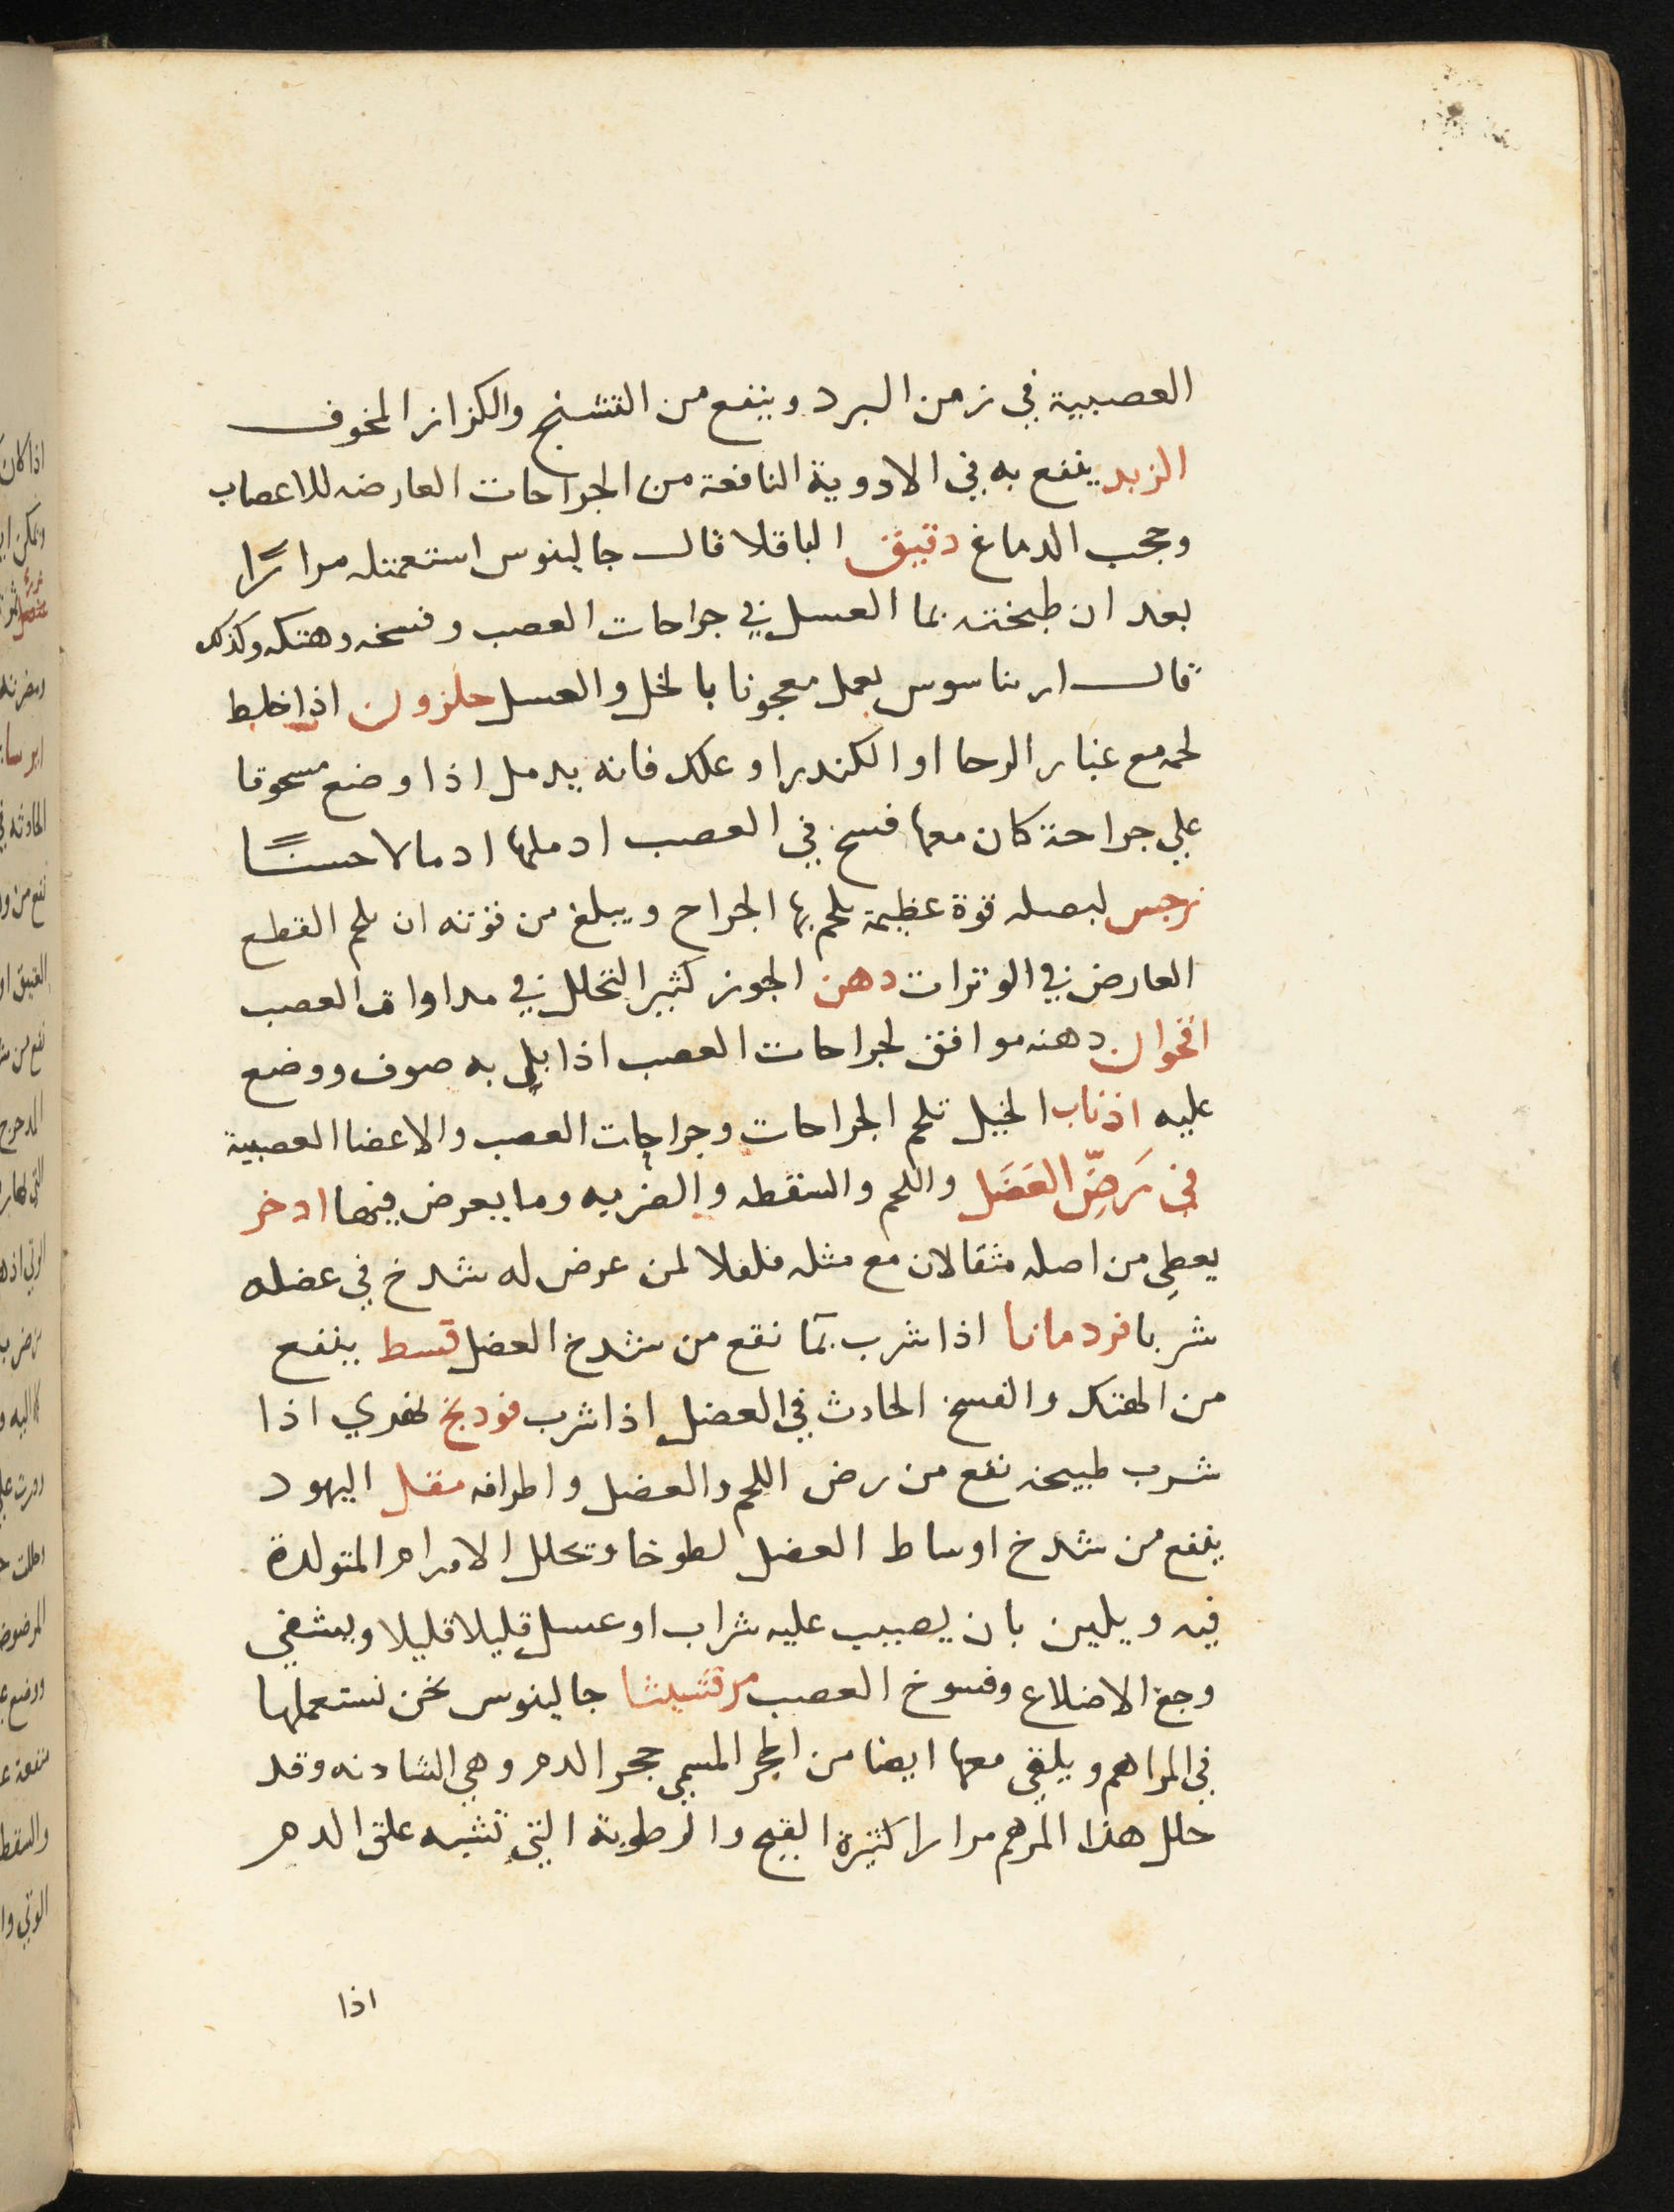 العصبية في زمن البرد وينفع من التشنج والكزاز المخوف
الزبد ينفع به في الادوية النافعة من الجراحات العارضه للاعصاب
وحجب الدماغ دقيق الباقلا قال جالينوس استعملته مرارًا
بعد ان طبخته بما العسل في جراحات العصب وفسخه وهتكه وكذلك
قال اريباسوس يعمل معجونا بالخل والعسل حلزون اذا خلط
لحمه مع غبار الرحا او الكندر او علك فانه يدمل اذا وضع مسحوقا
علي جراحة كان معها فسخ في العصب ادملها ادمالا حسنًا
نرجس لبصله قوة عظيمة يلحم بها الجراح ويبلغ من قوته ان يلحم القطع
العارض في الوترات دهن الجوز كثير التحلل في مداواة العصب
اقحوان دهنه موافق لجراحات العصب اذا بل به صوف ووضع
عليه اذناب الخيل تلحم الجراحات وجراحات العصب والاعضا العصبية
في رَضِّ العَضَل واللحم والسقطه والضربه وما يعرض فيهما ادخر
يعطي من اصله مثقالان مع مثله فلفلا لمن عرض له شدخ في عضله
شربا قردمانا اذا شرب بمآ نفع من شدخ العضل قسط ينفع
من الهتك والفسخ الحادث في العضل اذا شرب فودنج نهري اذا
شرب طبيخه نفع من رض اللحم والعضل واطرافه مقل اليهود
ينفع من شدخ اوساط العضل لطوخا وتحلل الاورام المتولدة
فيه ويلين بان يصيب عليه شراب او عسل قليلا قليلا ويشفي
وجع الاضلاع وفسوخ العصب مرقشيثا جالينوس نحن نستعملها
في المراهم ويلقي معها ايضا من الحجر المسمي حجر الدم وهي الشادنه وقد
حلل هذا المرهم مرارا كثيرة القيح والرطوبة التي تشبه علق الدم
اذا